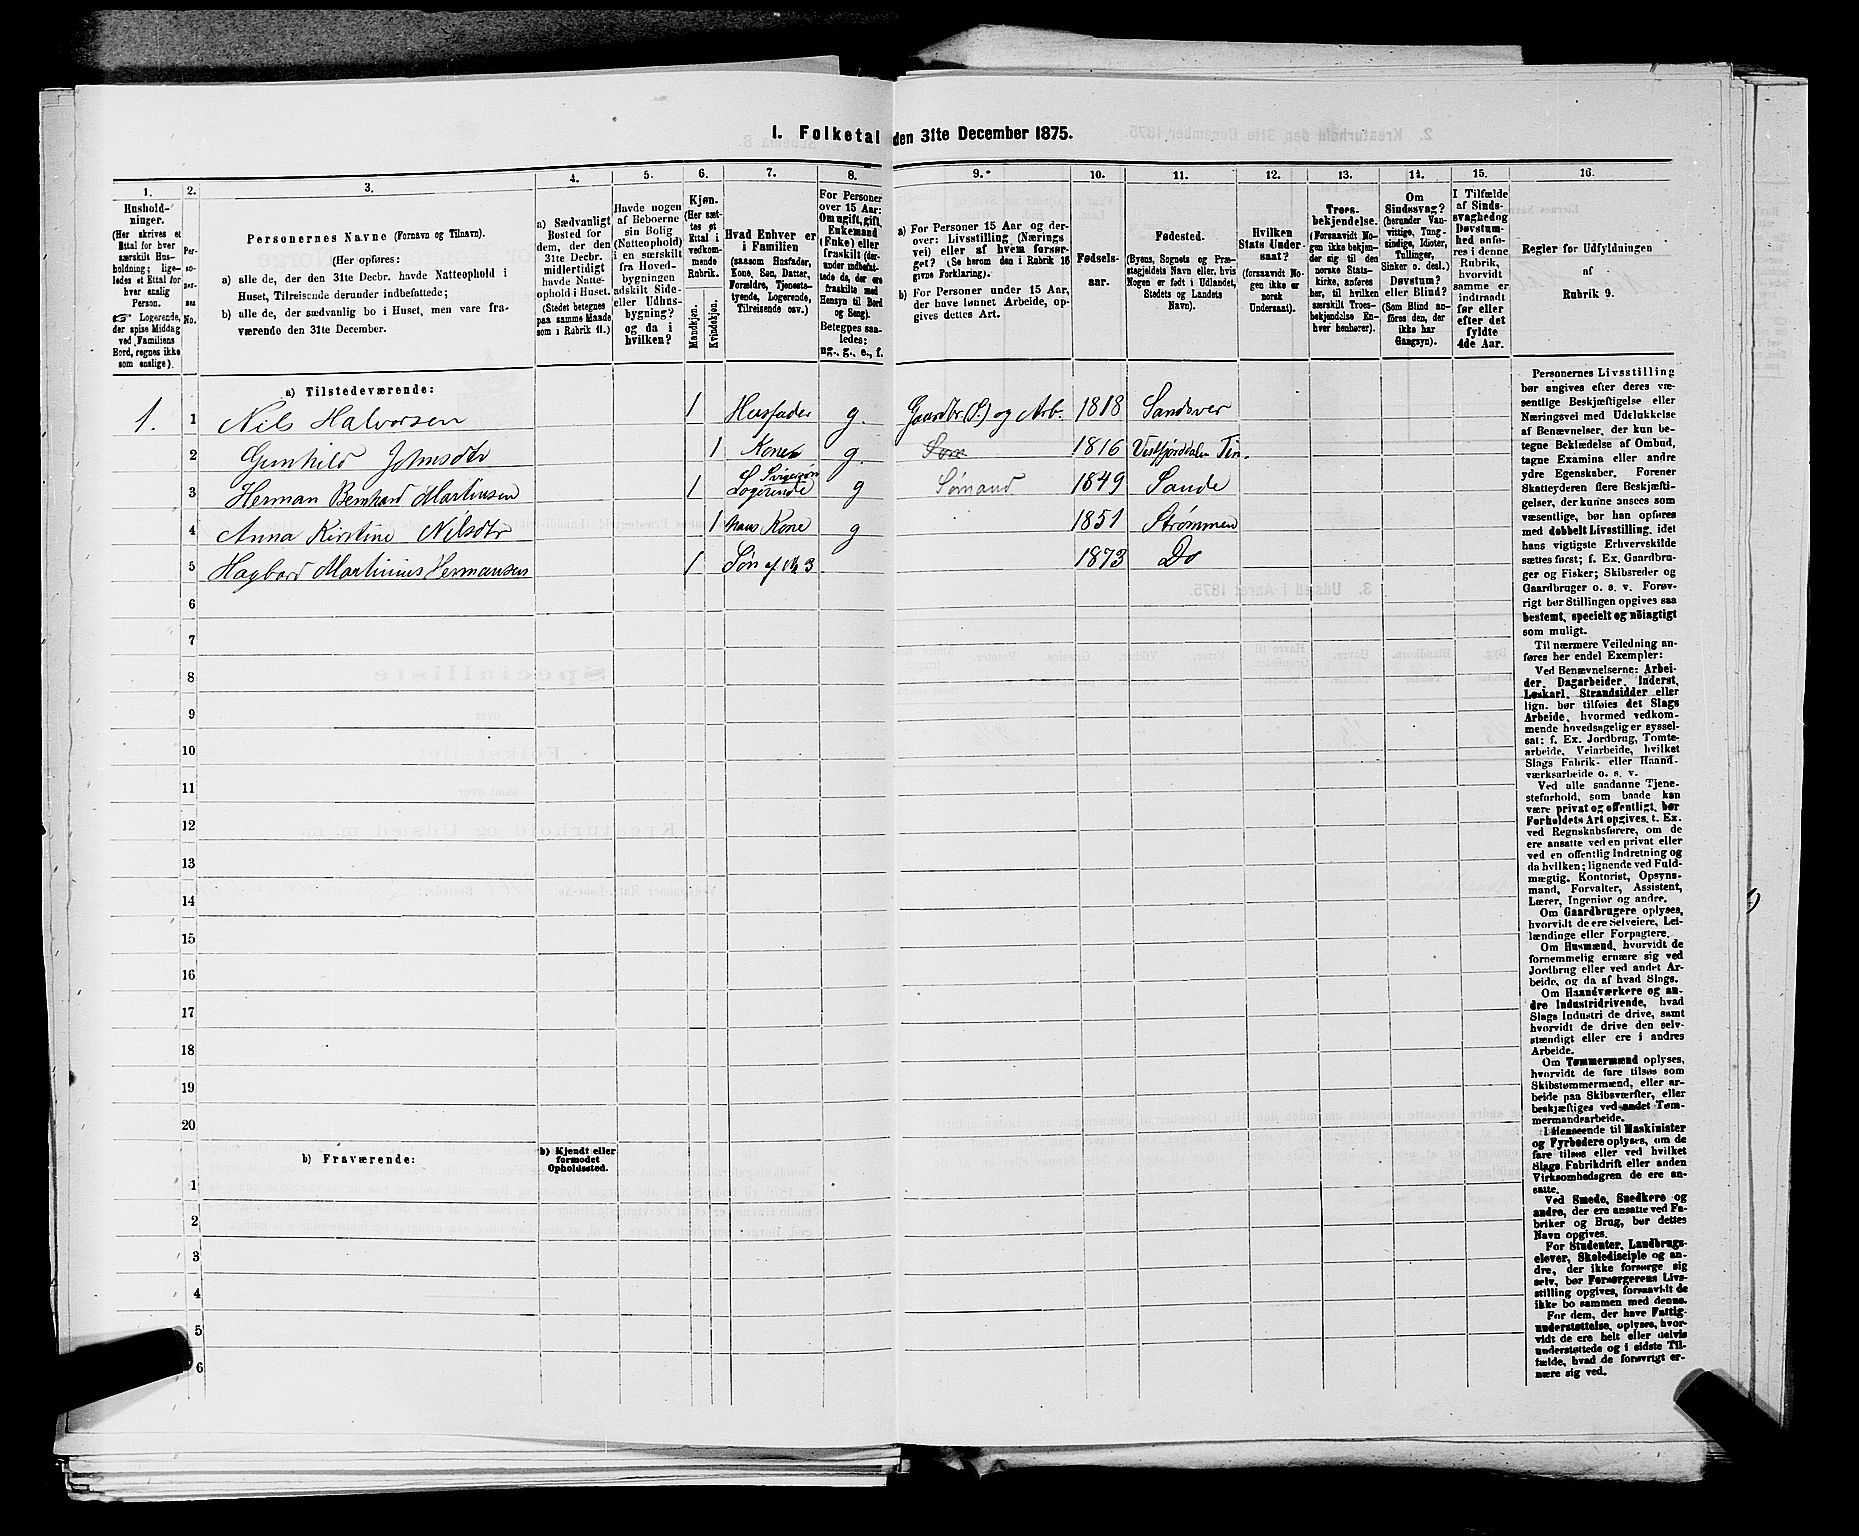 1. Folketal den 31te December 1875.
1.
Hushold-
ninger.
(Her skrives et
Ettal for hver
særskilt Hus-
holdning; lige-
ledes et Ettal for
hver enslig
Person.
☞ Logerende,
der spise Middag
ved Familiens
Bord, regnes ikke
som enslige).
2.
Per-
so-
ner-
nes
No.
3.
Personernes Navne (Fornavn og Tilnavn).
(Her opføres:
a) alle de, der den 31te Decbr. havde Natteophold i
Huset, Tilreisende derunder indbefattede;
b) alle de, der sædvanlig bo i Huset, men vare fra-
værende den 31te December.
4.
a) Sædvanligt
Bosted for
dem, der den
31te Decbr.
midlertidigt
havde Natte-
ophold i Huset.
(Stedet betegnes
paa samme Maade
som i Rubrik 11.)
5.
Havde nogen
af Beboerne
sin Bolig
(Natteophold)
i en særskilt
fra Hoved-
bygningen
adskilt Side-
eller Udhus-
bygning?
og da i
hvilken?
6.
Kjøn.
(Her sæt-
tes et
Ettal i
vedkom-
mende
Rubrik.
Mandkjøn.
Kvindekjøn.
7.
Hvad Enhver er
i Familien
(saasom Husfader,
Kone, Søn, Datter,
Forældre, Tjeneste-
tyende, Logerende,
Tilreisende osv.)
8.
For Personer
over 15 Aar:
Om ugift, gift,
Enkemand
(Enke) eller
fraskilt (der-
under indbefat-
tede de, der ere
fraskilte med
Hensyn til Bord
og Seng).
Betegnes saa-
ledes:
ug., g., e., f.
9.
a) For Personer 15 Aar og der-
over: Livsstilling (Nærings
vei) eller af hvem forsør-
get? (Se herom den i Rubrik 16
givne Forklaring).
b) For Personer under 15 Aar,
der have lønnet Arbeide, op-
gives dettes Art.
10.
Fødsels-
aar.
11.
Fødested.
(Byens, Sognets og Præ-
stegjeldets Navn eller, hvis
Nogen er født i Udlandet,
Stedets og Landets
Navn).
12.
Hvilken
Stats Under-
saat?
(forsaavidt No-
gen ikke er
norsk
Undersaat).
13.
Troes-
bekjendelse.
(Forsaavidt No-
gen ikke bekjen-
der sig til den
norske Stats-
kirke, anføres
her, til hvilken
særskilt Troes-
bekjendelse En-
hver henhører).
14.
Om
Sindssvag?
(herunder Van-
vittige, Tung-
sindige, Idioter,
Tullinger,
Sinker o. desl.)
Døvstum?
eller Blind?
(Som Blind an-
føres den, der
ikke har
Gangsyn).
15.
I Tilfælde
af Sinds-
svaghed og
Døvstum-
hed anfø-
res i denne
Rubrik,
hvorvidt
samme er
indtraadt
før eller
efter det
fyldte
4de Aar.
16.
Regler for Udfyldningen
af
Rubrik 9.
a) Tilstedeværende:
1. 1 Nils Halvorsen 1 Husfader g. Gaardbr. (S.) og Arb. 1818 Sandsver
2 Gunhild Johnsdtr 1 Kone g. Som 1816 Vestfjorddalen Tin.
3 Herman Bernhard Martinsen 1 S Svigersøn Logerende g Sømand 1849 Sande
4 Anna Kirstine Nilsdtr 1 hans Kone g 1851 Strømmen
5 Hagbard Martinius Hermansen 1 Søn af No 3 1873 Do
6
7
8
9
10
11
12
13
14
15
16
17
18
19
20
b) Fraværende:
b) Kjendt eller
formodet
Opholdssted.
1
2
3
4
5
6
Personernes Livsstilling
bør angives efter deres væ-
sentlige Beskjæftigelse eller
Næringsvei med Udelukkelse
af Benævnelser, der kun be-
tegne Beklædelse af Ombud,
tagne Examina eller andre
ydre Egenskaber. Forener
Skatteyderen flere Beskjæfti-
gelser, der kunne ansees som
væsentlige, bør han opføres
med dobbelt Livsstilling, idet
hans vigtigste Erhvervskilde
sættes først; f. Ex. Gaardbru-
ger og Fisker; Skibsreder og
Gaardbruger o. s. v. Forøv-
rigt bør Stillingen opgives saa
bestemt, specielt og nøiagtigt
som muligt.
Til nærmere Veiledning an-
føres her endel Exempler:
Ved Benævnelserne: Arbei-
der, Dagarbeider, Inderst,
Løskarl, Strandsidder eller
lign. bør tilføies det Slags
Arbeide, hvormed vedkom-
mende hovedsagelig er syssel-
sat; f. Ex. Jordbrug, Tomte-
arbeide, Veiarbeide, hvilket
Slags Fabrik- eller Haand-
værksarbeide o. s. v.
Ved alle saadanne Tjene-
steforhold, som baade kan
være privat og offentligt, bør
Forholdets Art opgives, t. Ex.
ved Regnskabsførere, om de
ere ansatte ved en privat eller
ved en offentlig Indretning og
da hvilken; lignende ved Fuld-
mægtig, Kontorist, Opsyns-
mand, Forvalter, Assistent,
Lærer, Ingeniør og andre.
Om Gaardbrugere oplyses,
hvorvidt de ere Selveiere, Lei-
lændinge eller Forpagtere.
Om Husmænd, hvorvidt de
fornemmelig ernære sig ved
Jordbrug eller ved andet Ar-
beide, og da af hvad Slags.
Om Haandværkere og an-
dre Industridrivende, hvad
Slags Industri de drive, samt
hvorvidt de drive den selv-
stændigt eller ere i andres
Arbeide.
Om Tømmermænd oplyses,
hvorvidt de fare tilsøs som
Skibstømmermænd, eller ar-
beide paa Skibsværfter, eller
beskjæftiges ved andet Tøm-
mermandsarbeide.
I Henseende til Maskinister
og Fyrbødere oplyses, om de
fare tilsøs eller ved hvilket
Slags Fabrikdrift eller anden
Virksomhedsgren de ere an-
satte.
Ved Smede, Snedkere og
andre, der ere ansatte ved Fa-
briker og Brug, bør dettes
Navn opgives.
For Studenter, Landbrugs-
elever, Skoledisciple og an-
dre, der ikke forsørge sig
selv, bør Forsørgerens Livs-
stilling opgives, forsaavidt de
ikke bo sammen med denne.
For dem, der have Fattig-
understøttelse, oplyses, hvor-
vidt de ere helt eller delvis
understøttede og i sidste Til-
fælde, hvad de forøvrigt er-
nære sig ved.